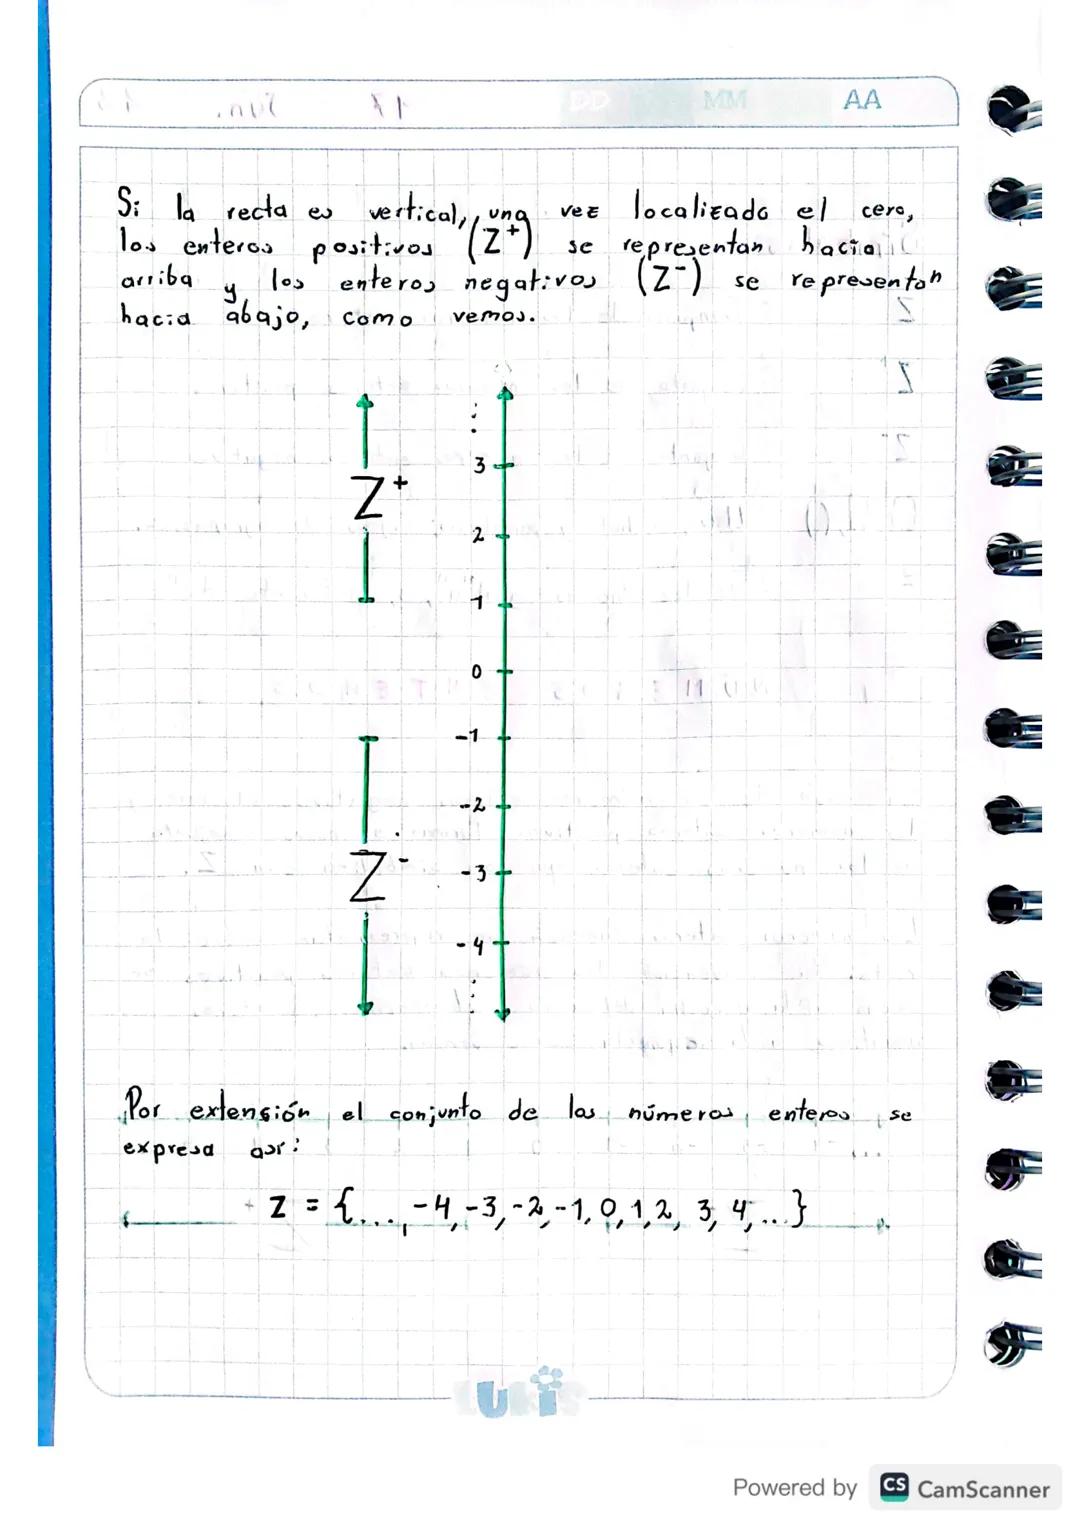 DD MM AA
Si la recta es vertical, una vez localizado el cero,
los enteros positivos (Z⁺) se representan hacia
arriba y los enteros negativos (Z⁻) se representan
hacia abajo, como vemos.
3
Z⁺
2
1
0
-1
-2
Z⁻
-3
-4
Por extensión el conjunto de los números enteros se
expresa así:
Z = {..., -4, -3, -2, -1, 0, 1, 2, 3, 4, ...}
Powered by CS CamScanner